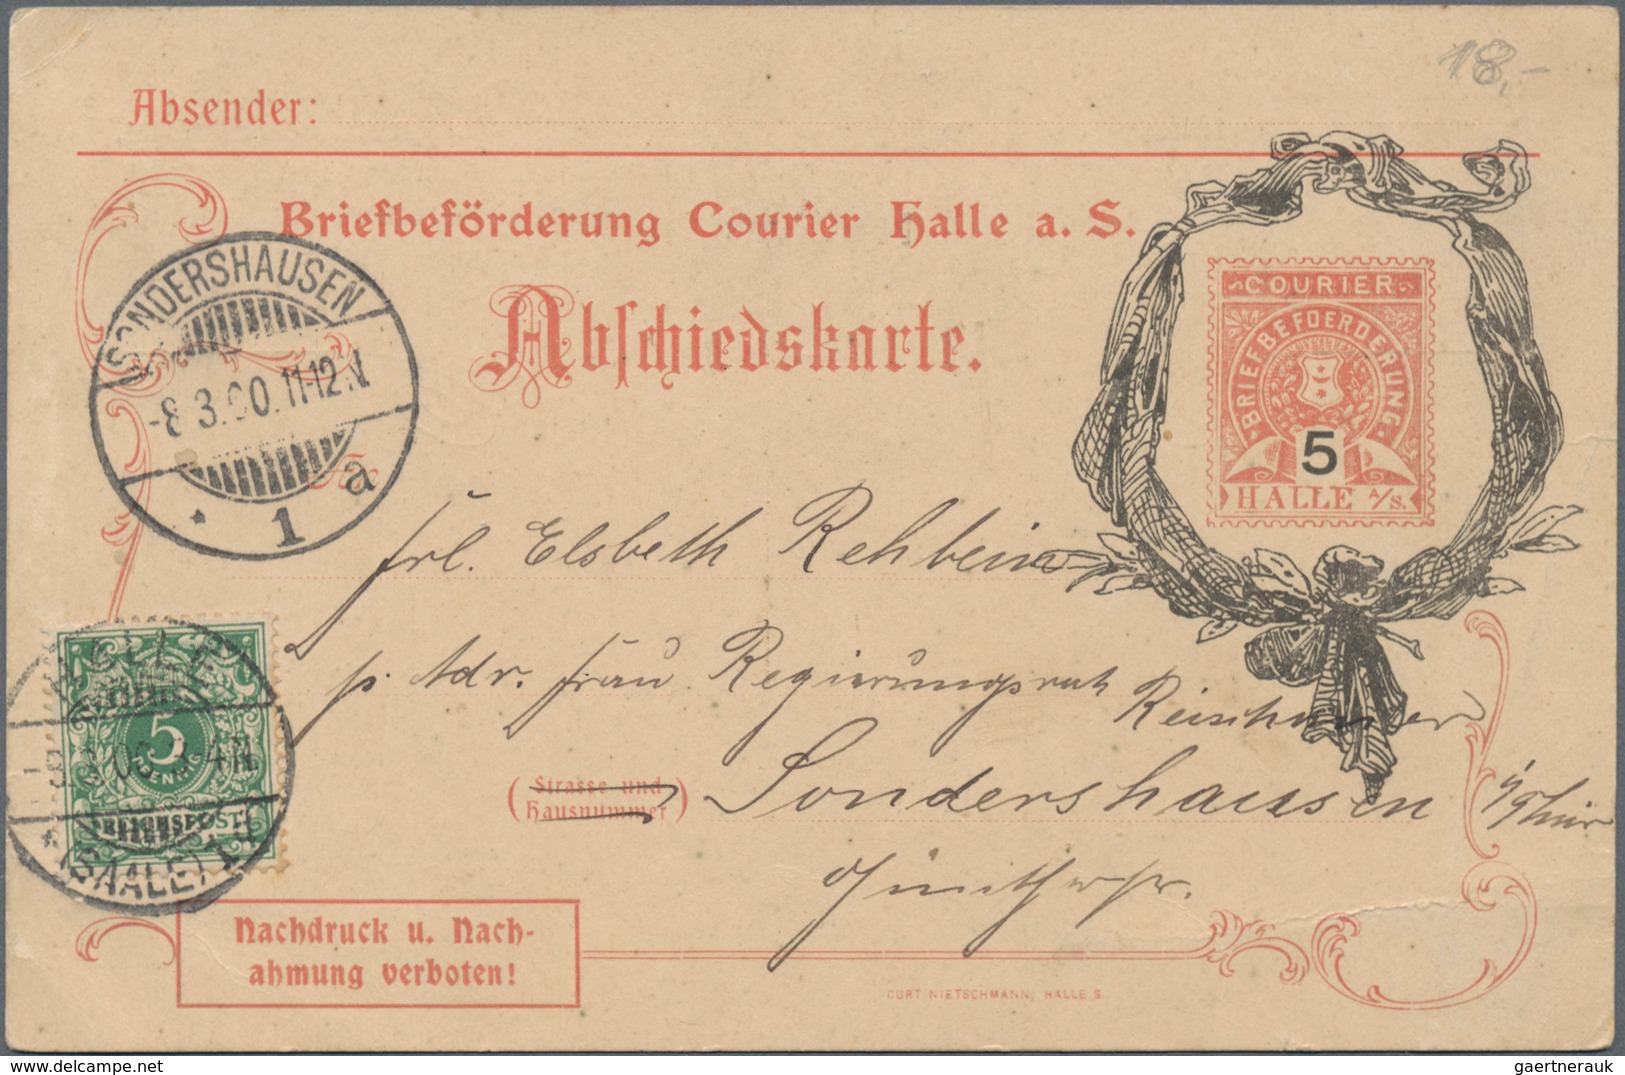 18,-
Absender:
Briefbeförderung Courier Halle a. S.
Abschiedskarte.
COURIER
BRIEFBEFOERDERUNG
5
HALLE A/S.
SONDERSHAUSEN
-8 3.00.11-12 V.
* 1 a
Frl. Elsbeth Rehbein
p. Adr. Frau Regierungsrat
Reischauer
(Strasse und
Hausnummer)
Sondershausen i/Thür
HALLE
5
PFENNIG
REICHSPOST
(SAALE) 1
Nachdruck u. Nach-
ahmung verboten!
CURT NIETSCHMANN, HALLE S.
gaertnerauk